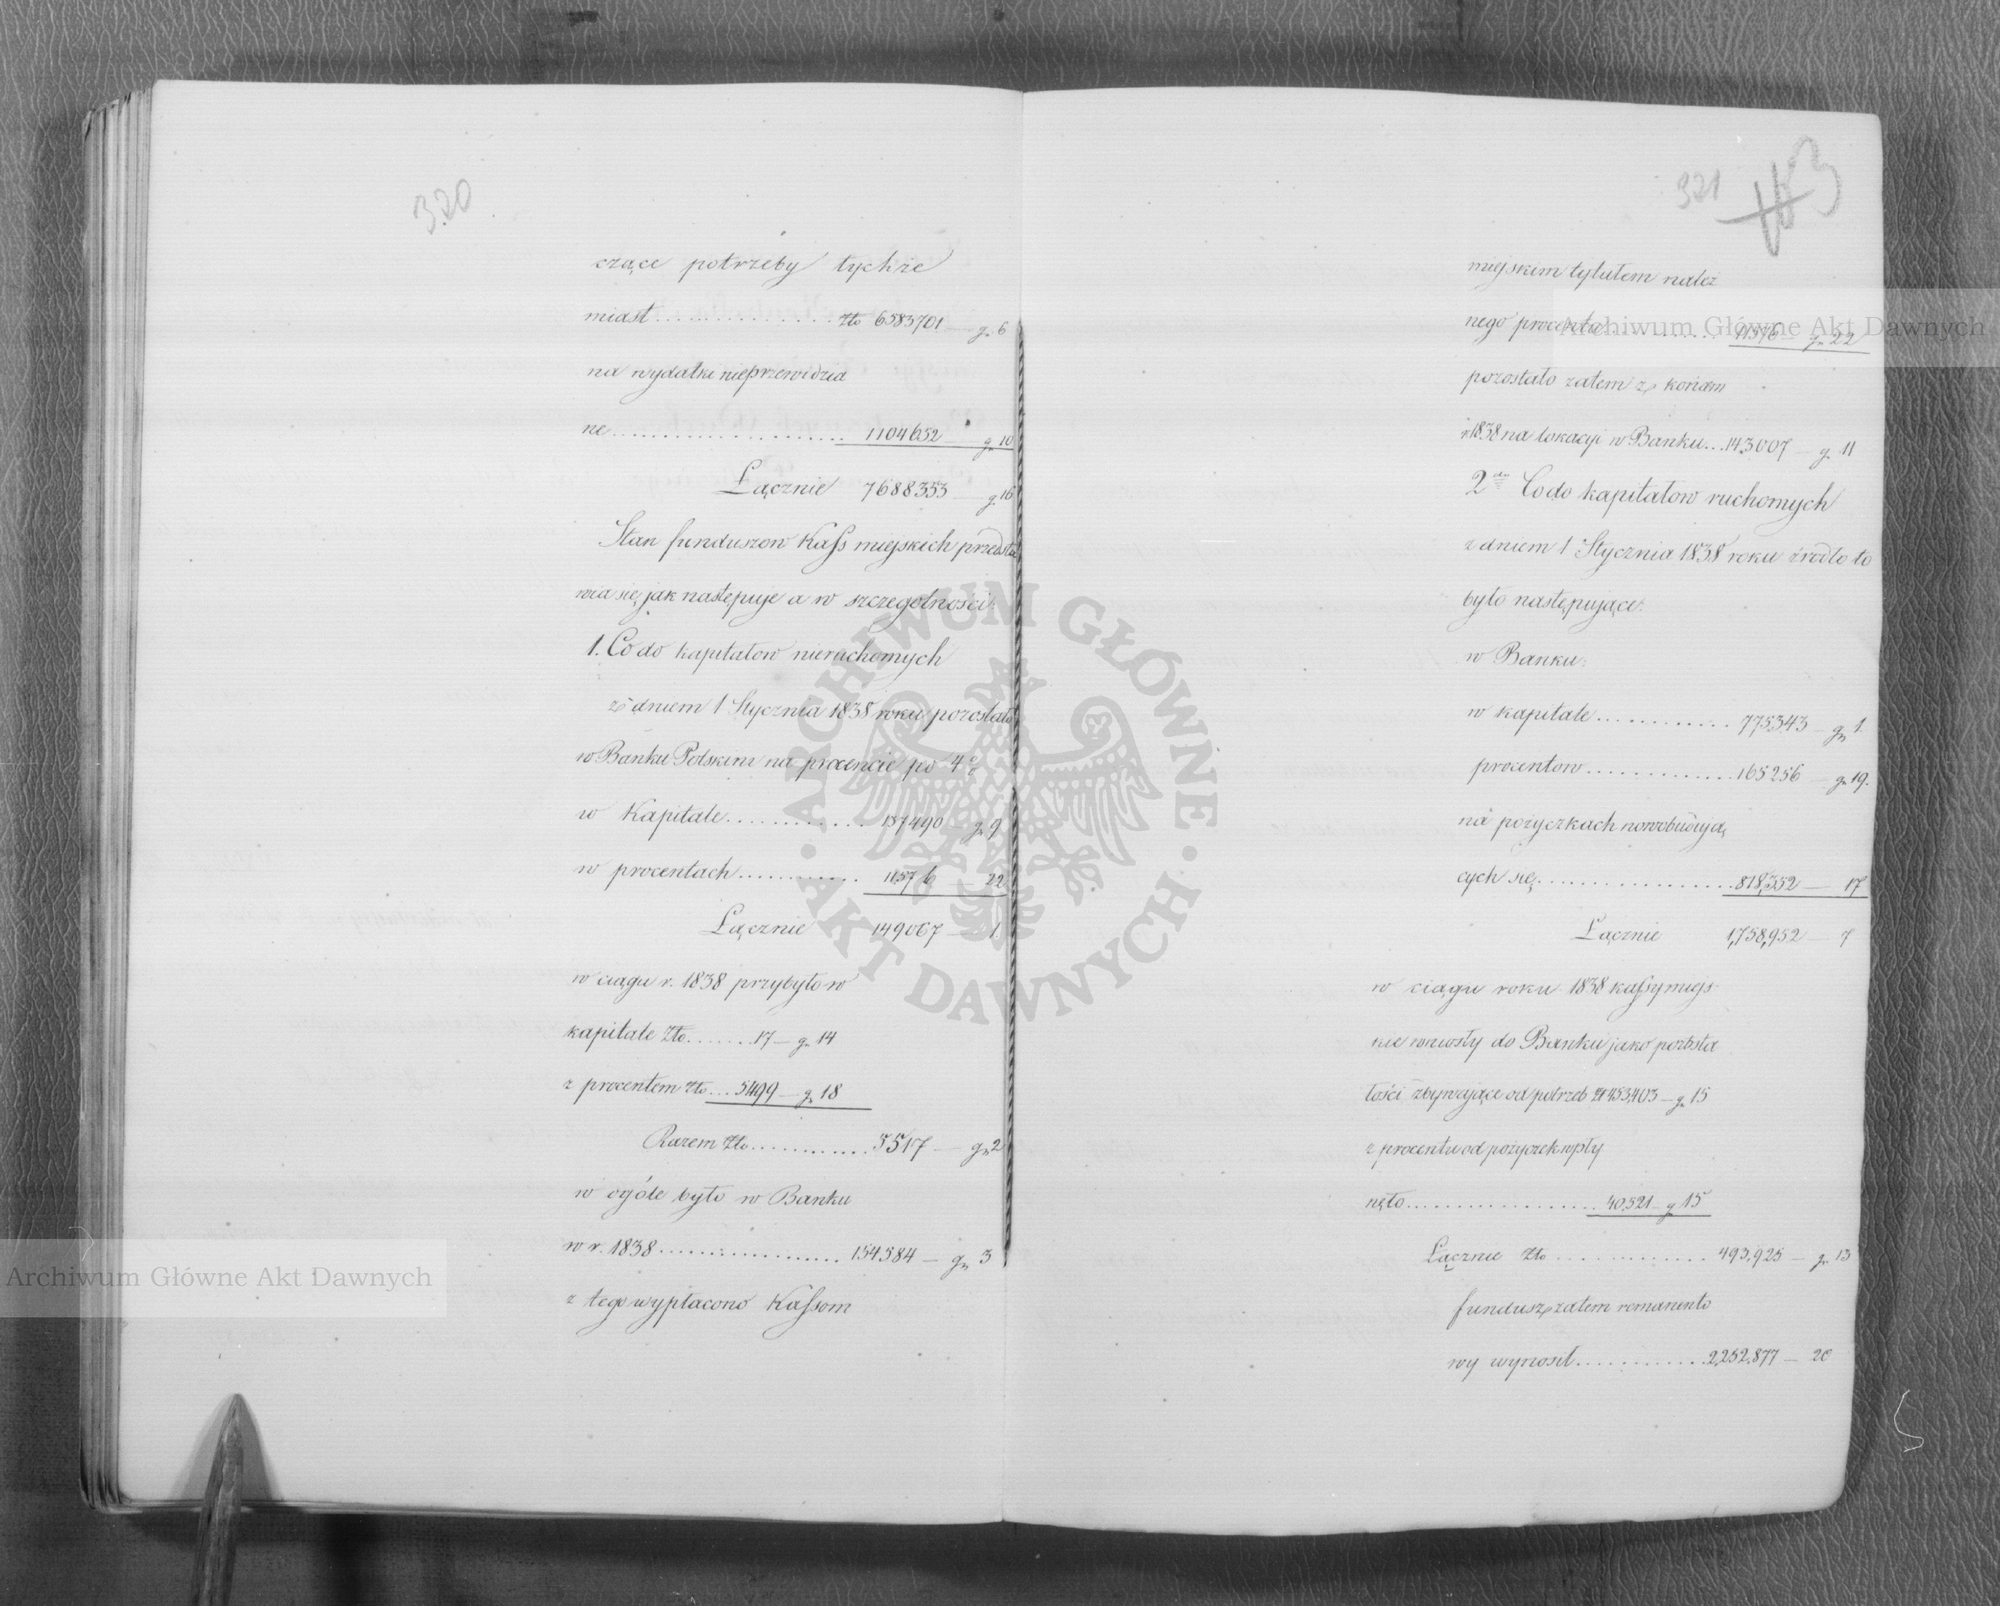 320
czące potrzeby tychże
miast .................. Złp 6583701 — gr 6
na wydatki nieprzewidzia
ne ..................... 1104652 — gr 10
Łącznie 7688353 — gr 16
Stan funduszow Kass miejskich przedsta
wia się, jak następuje a w szczegolności:
1. Co do kapitałow nieruchomych
z dniem 1 Stycznia 1838 roku pozostało
w Banku Polskim na procencie po 4%
w Kapitale ............. 137490 — gr 9
w procentach ........... 11576 — 22
Łącznie 149067 — 1.
w ciągu r. 1838 przybyło w
kapitale Złp ....... 17 — gr 14
z procentem Złp ... 5499 — gr 18
Razem Złp ............ 5517 — gr 2
w ogóle było w Banku
w r. 1838 .................. 154584 — gr 3
z tego wypłacono Kassom
321
miejskim tytułem należ
nego procentu ............ 11576 — gr 22
pozostało zatem z końcem
r. 1838 na lokacyi w Banku ... 143007 — gr. 11
2do Co do kapitałow ruchomych
z dniem 1 Stycznia 1838 roku źrodło to
było następujące:
w Banku:
w kapitale ............ 775343 — gr 1.
procentow ............. 165256 — gr 19.
na pożyczkach nowobudują
cych się ................. 818,352 — 17
Łącznie 1,758,952 — 7
w ciągu roku 1838 kassy miejs
kie wniosły do Banku jako pozosta
łości zbywające od potrzeb zł 453,403 — gr 15
z procentu od pożyczek wpły
nęło .................. 40,521 — gr 15
Łącznie Złp .............. 493,925 — gr 13
fundusz zatem remanento
wy wynosił ............. 2,252,877 — 20
Archiwum Główne Akt Dawnych
Archiwum Główne Akt Dawnych
ARCHIWUM GŁÓWNE · AKT DAWNYCH ·